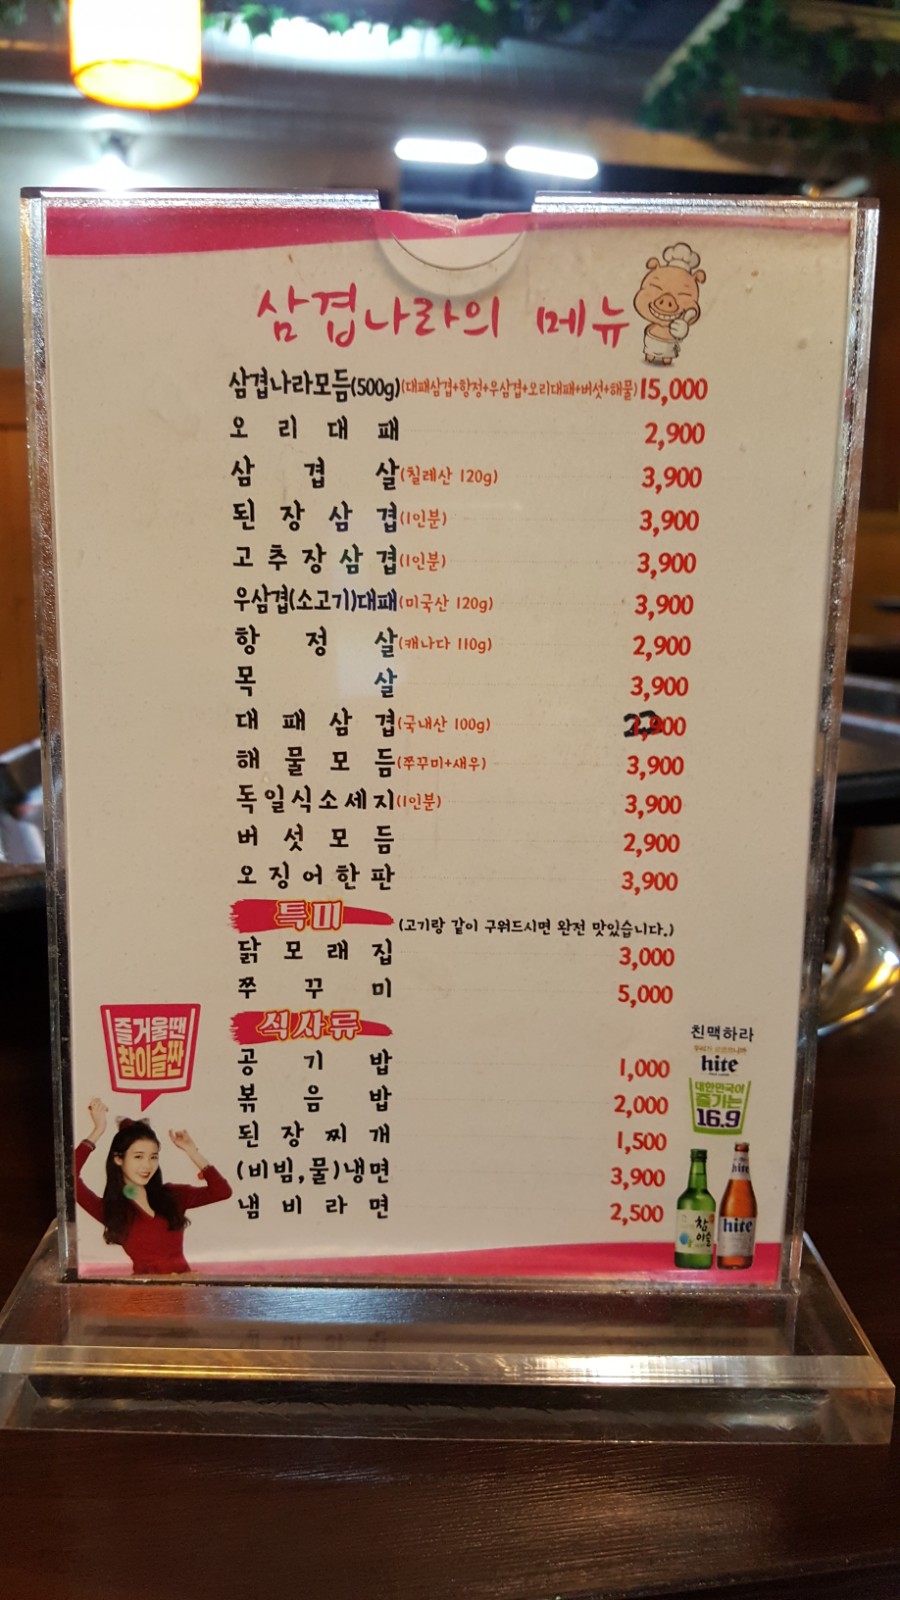 삼겹나라의 메뉴
삼겹나라모듬(500g)(대패삼겹+항정+우삼겹+오리대패+버섯+해물) 15,000
오리대패 2,900
삼겹살(칠레산 120g) 3,900
된장삼겹(1인분) 3,900
고추장삼겹(1인분) 3,900
우삼겹(소고기)대패(미국산 120g) 3,900
항정살(캐나다 110g) 2,900
목살 3,900
대패삼겹(국내산 100g)
해물모듬(쭈꾸미+새우) 3,900
독일식소세지(1인분) 3,900
버섯모듬 2,900
오징어한판 3,900
특미 (고기랑 같이 구워드시면 완전 맛있습니다.)
닭모래집 3,000
쭈꾸미 5,000
식사류
공기밥 1,000
볶음밥 2,000
된장찌개 1,500
(비빔,물)냉면 3,900
냄비라면 2,500
즐거울땐
참이슬짠
친맥하라
hite
대한민국이
즐기는
16.9
참이슬
hite
hite